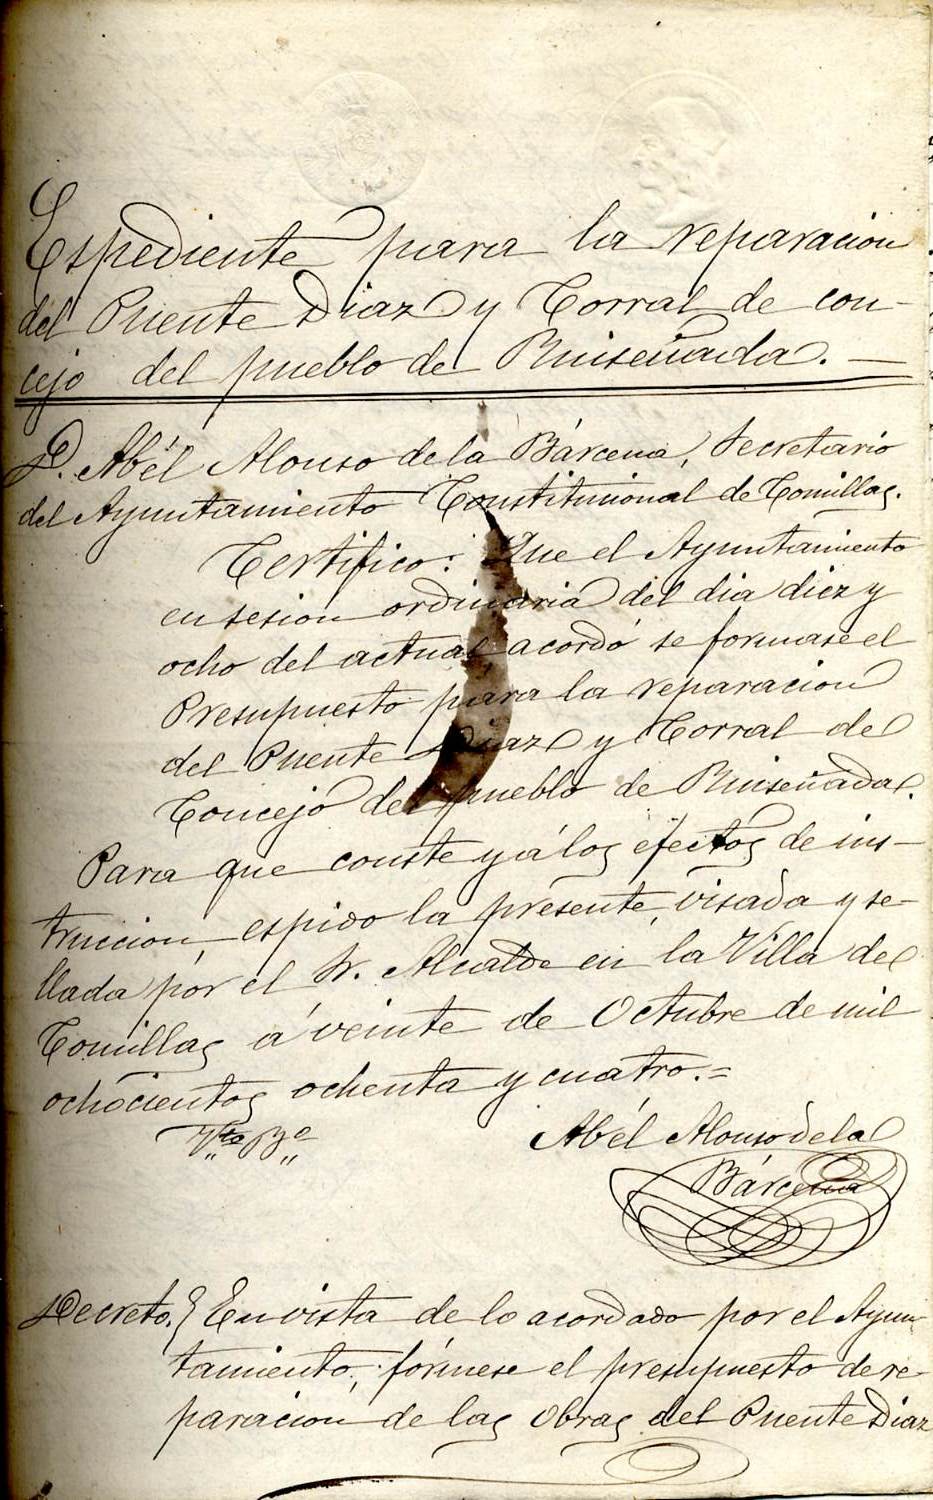 Espediente para la reparacion
del Puente Diaz y Corral de con-
cejo del pueblo de Ruiseñada. —
D. Abél Alonso de la Bárcena, Secretario
del Ayuntamiento Constitucional de Comillas.
Certifico: Que el Ayuntamiento
en sesion ordinaria del dia diez y
ocho del actual acordó se formase el
Presupuesto para la reparacion
del Puente Diaz y Corral de
Concejo del pueblo de Ruiseñada.
Para que conste y á los efectos de ins-
truccion, espido la presente, visada y se-
llada por el Sr. Alcalde en la Villa de
Comillas á veinte de Octubre de mil
ochocientos ochenta y cuatro.=
Vto Bo
Abél Alonso de la
Bárcena
Decreto.} En vista de lo acordado por el Ayun-
tamiento, fórmese el presupuesto de re-
paracion de las obras del Puente Diaz